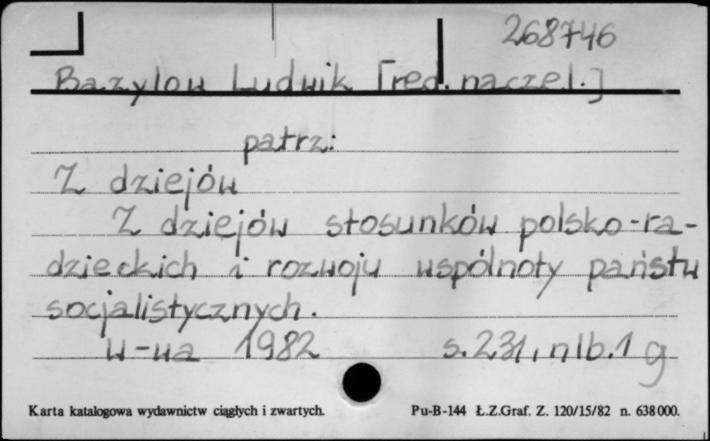 268746
Bazylow Ludwik [red. naczel.]
patrz:
Z dziejów
Z dziejów stosunków polsko-ra-
dzieckich i rozwoju wspólnoty państw
socjalistycznych.
W-wa 1982 s. 231, nlb. 1 g
Karta katalogowa wydawnictw ciągłych i zwartych. Pu-B-144 Ł.Z.Graf. Z. 120/15/82 n. 638000.